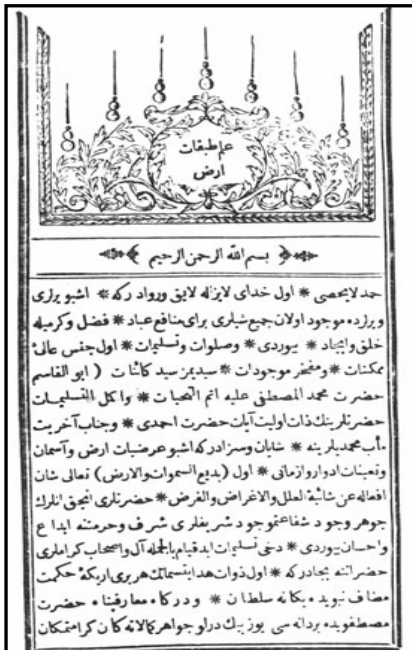 علم طبقات
ارض
بسم الله الرحمن الرحيم
حمد لايحصى * اول خداى لايزاله لايق ورواد ركه * اشبو يرلرى
ويرلرده موجود اولان جميع شيلرى براى منافع عباد * فضل وكرميله
خلق وايجاد * بيوردى * وصلوات وتسليمات * اول جنس عالئ
ممكنات * ومفخر موجودات * سيديمز سيد كائنات ( ابو القاسم
حضرت محمد المصطفى عليه اتم التحيات * واكل التسليمات
حضرتلرينك ذات اوليت آيات حضرت احمدى * وجناب آخريت
مأب محمديلرينه * شايان وسزادركه اشبو عرضيات ارض وآسمان
وتعينات ادوار وازمانى * اول (بديع السموات والارض) تعالى شان
افعاله عن شائبة العلل والاغراض والغرض * حضرتلرى انجق انلرك
جوهر وجود شفاعتموجود شريفلرى شرف وحرمتنه ابداع
واحسان بيوردى * دخى تسليمات ابد قيام بالجمله آل واصحاب كراملرى
حضراتنه بجادركه * اول ذوات هدا بتسماتك هربرى اريكۀ حكمت
مضاف نبويده يكانه سلطان * ودركاه معارفپناه حضرت
مصطفويده بردانه سى يوز بيك درلو جواهر كمالاته كان كرامتمكان